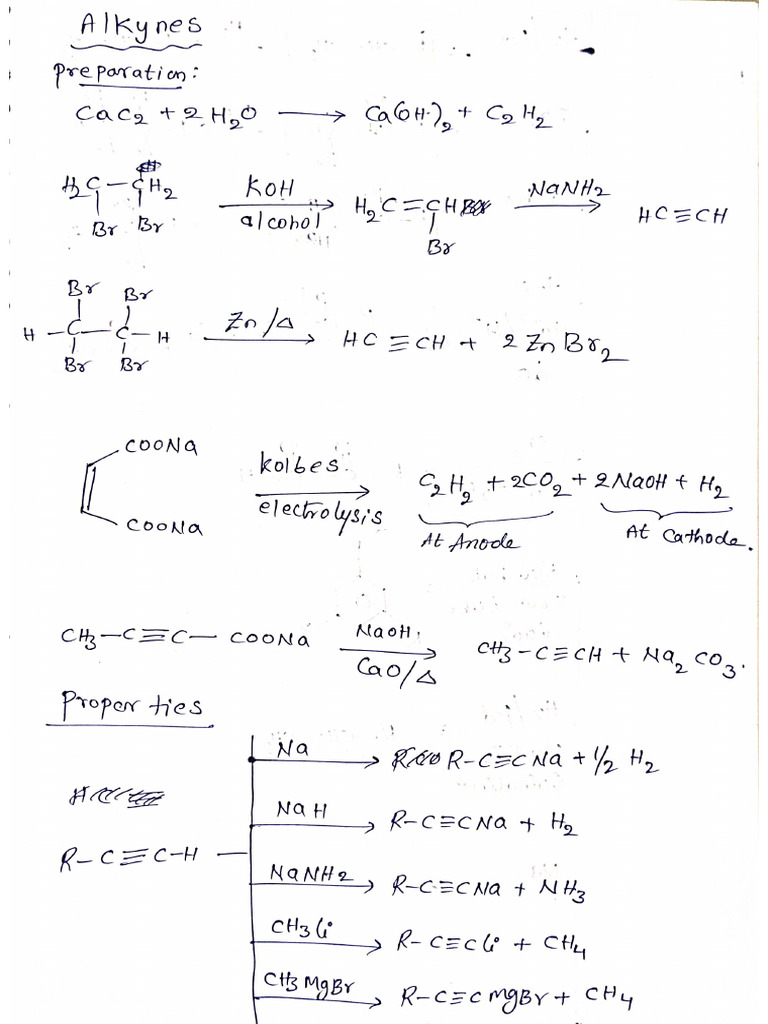 Alkynes
preparation:
CaC2 + 2H2O ⟶ Ca(OH)2 + C2H2
H2C – CH2 KOH alcohol ⟶ H2C=CH NaNH2 ⟶ HC≡CH
Br Br Br
Br Br
H – C – C – H Zn/Δ ⟶ HC≡CH + 2ZnBr2
Br Br
COONa
kolbes electrolysis ⟶ C2H2 + 2CO2 + 2NaOH + H2
COONa At Anode At Cathode.
CH3–C≡C– COONa NaOH CaO/Δ ⟶ CH3–C≡CH + Na2CO3.
Properties
Na ⟶ R–C≡CNa + 1/2 H2
NaH ⟶ R–C≡CNa + H2
R–C≡C–H
NaNH2 ⟶ R–C≡CNa + NH3
CH3Li ⟶ R–C≡CLi + CH4
CH3MgBr ⟶ R–C≡CMgBr + CH4